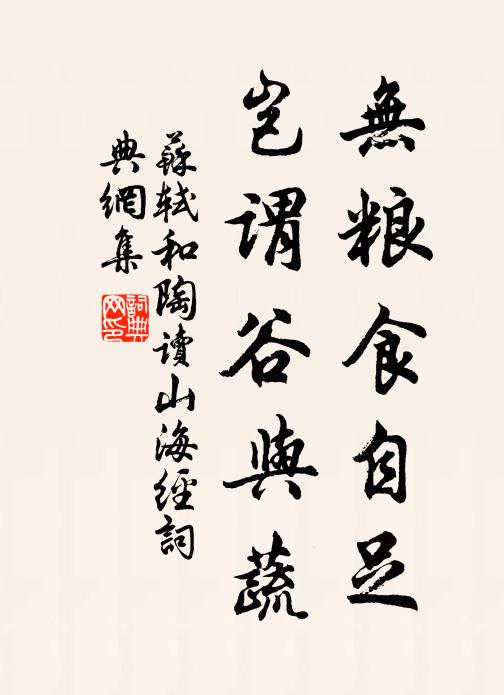 無粮食自足
豈謂谷與蔬
蘇軾和陶讀山海經詞
典網集
詞典
网印